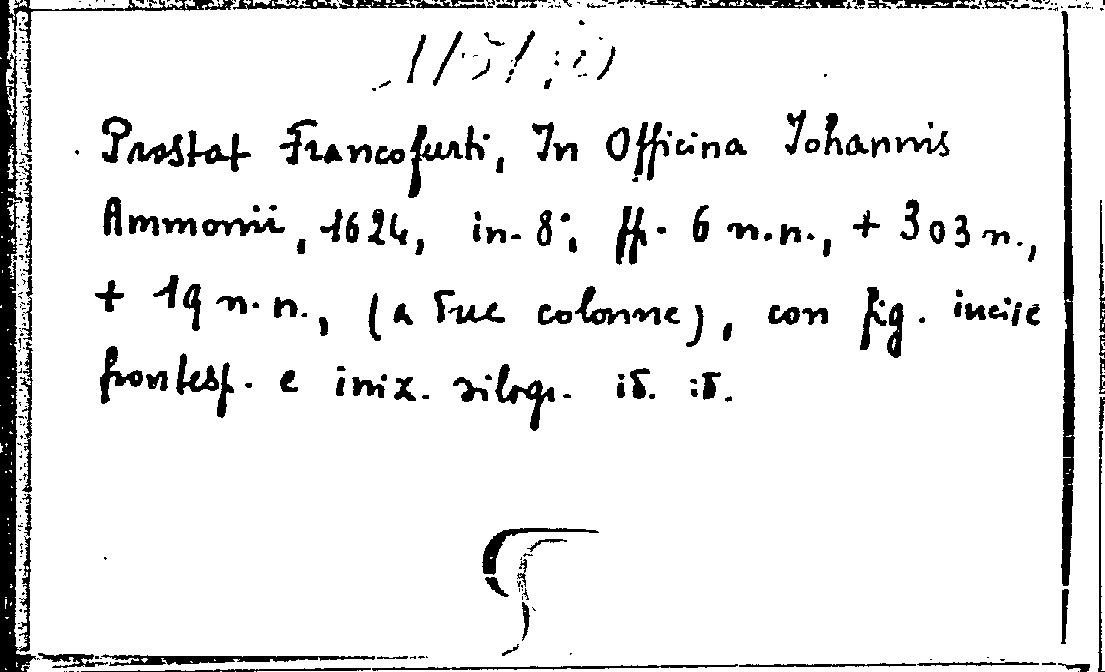 Prostat Francofurti, In Officina Iohannis
Ammonii, 1624, in-8°, ff. 6 n.n., + 303 n.,
+ 19 n.n., (a due colonne), con fig. incise
frontesp. e iniz. silogr. id. id.